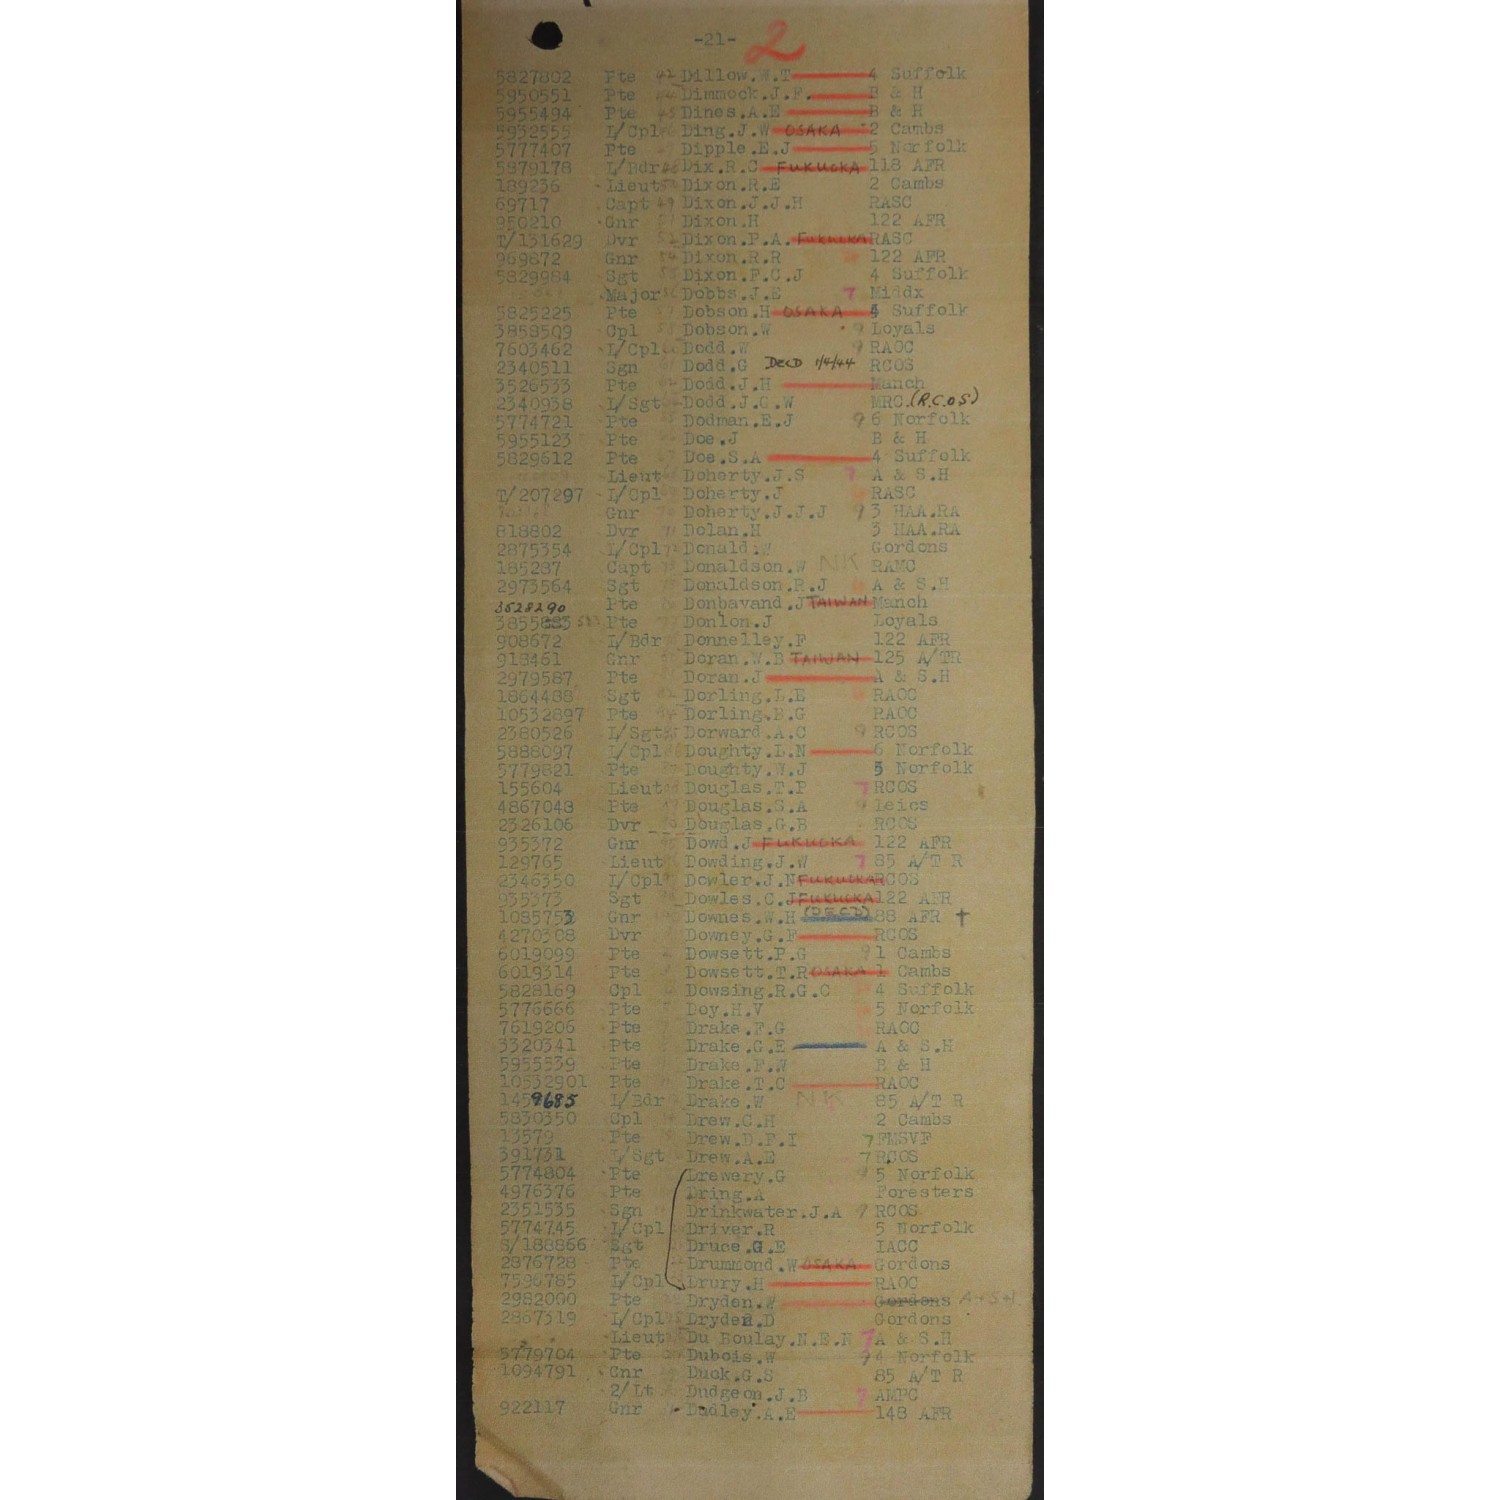 -21- 2
5827802 Pte 42 Dillow.W.T 4 Suffolk
5950551 Pte 44 Dimmock.J.F. B & H
5955494 Pte 45 Dines.A.E B & H
5932555 L/Cpl Ding.J.W OSAKA 2 Cambs
5777407 Pte Dipple.E.J 5 Norfolk
5879178 L/Bdr Dix.R.C FUKUOKA 118 AFR
189236 Lieut Dixon.R.E 2 Cambs
69717 Capt 49 Dixon.J.J.H RASC
950210 Gnr Dixon.H 122 AFR
T/131629 Dvr Dixon.P.A. FUKUOKA RASC
969872 Gnr Dixon.R.R 122 AFR
5829984 Sgt Dixon.F.C.J 4 Suffolk
Major Dobbs.J.E 7 Middx
5825225 Pte Dobson.H OSAKA 4 Suffolk
3858509 Cpl Dobson.W 9 Loyals
7603462 L/Cpl Dodd.W 9 RAOC
2340511 Sgn Dodd.G DECD 1/4/44 RCOS
3526533 Pte Dodd.J.H Manch
2340938 L/Sgt Dodd.J.G.W MRC.(R.C.O.S)
5774721 Pte Dodman.E.J 9 6 Norfolk
5955123 Pte Doe.J B & H
5829612 Pte Doe.S.A 4 Suffolk
Lieut Doherty.J.S 7 A & S.H
T/207297 L/Cpl Doherty.J RASC
Gnr Doherty.J.J.J 9 3 HAA.RA
818802 Dvr 71 Dolan.H 3 HAA.RA
2875354 L/Cpl Donald.W Gordons
185287 Capt Donaldson.W NK RAMC
2973564 Sgt Donaldson.R.J A & S.H
3528290 Pte Donbavand.J TAIWAN Manch
3855883 Pte Donlon.J Loyals
908672 L/Bdr Donnelley.F 122 AFR
918461 Gnr Doran.W.B TAIWAN 125 A/TR
2979587 Pte Doran.J A & S.H
1864488 Sgt Dorling.L.E RAOC
10532897 Pte Dorling.E.G RAOC
2380526 L/Sgt Dorward.A.C 9 RCOS
5888097 L/Cpl Doughty.L.N 6 Norfolk
5779821 Pte Doughty.W.J 5 Norfolk
155604 Lieut Douglas.T.P 7 RCOS
4867048 Pte Douglas.S.A 9 Leics
2326106 Dvr Douglas.G.B RCOS
935372 Gnr Dowd.J FUKUOKA 122 AFR
129765 Lieut Dowding.J.W 7 85 A/T R
2346350 L/Cpl Dowler.J.N FUKUOKA RCOS
935373 Sgt Dowles.C.J FUKUOKA 122 AFR
1085753 Gnr Downes.W.H (DECD) 88 AFR †
4270308 Dvr Downey.G.F RCOS
6019099 Pte Dowsett.P.G 9 1 Cambs
6019314 Pte Dowsett.T.R OSAKA 1 Cambs
5828169 Cpl Dowsing.R.G.C 4 Suffolk
5776666 Pte Doy.H.V 5 Norfolk
7619206 Pte Drake.F.G RAOC
3320341 Pte Drake.G.E A & S.H
5955539 Pte Drake.F.W B & H
10532901 Pte Drake.T.C RAOC
1459685 L/Bdr Drake.W NK 85 A/T R
5830350 Cpl Drew.C.H 2 Cambs
13579 Pte Drew.D.F.I 7 FMSVF
391731 L/Sgt Drew.A.E 7 RCOS
5774804 Pte Drewery.G 9 5 Norfolk
4976376 Pte Dring.A Foresters
2351535 Sgn Drinkwater.J.A 9 RCOS
5774745 L/Cpl Driver.R 5 Norfolk
S/188866 Sgt Druce.G.E IACC
2876728 Pte Drummond.W OSAKA Gordons
7596785 L/Cpl Drury.H RAOC
2982000 Pte Dryden.W Gordons A+S+H
2867319 L/Cpl Dryden.D Gordons
Lieut Du Boulay.N.E.N 7 A & S.H
5779704 Pte Dubois.W 9 4 Norfolk
1094791 Gnr Duck.G.S 85 A/T R
2/Lt Dudgeon.J.B 7 AMPC
922117 Gnr Dudley.A.E 148 AFR